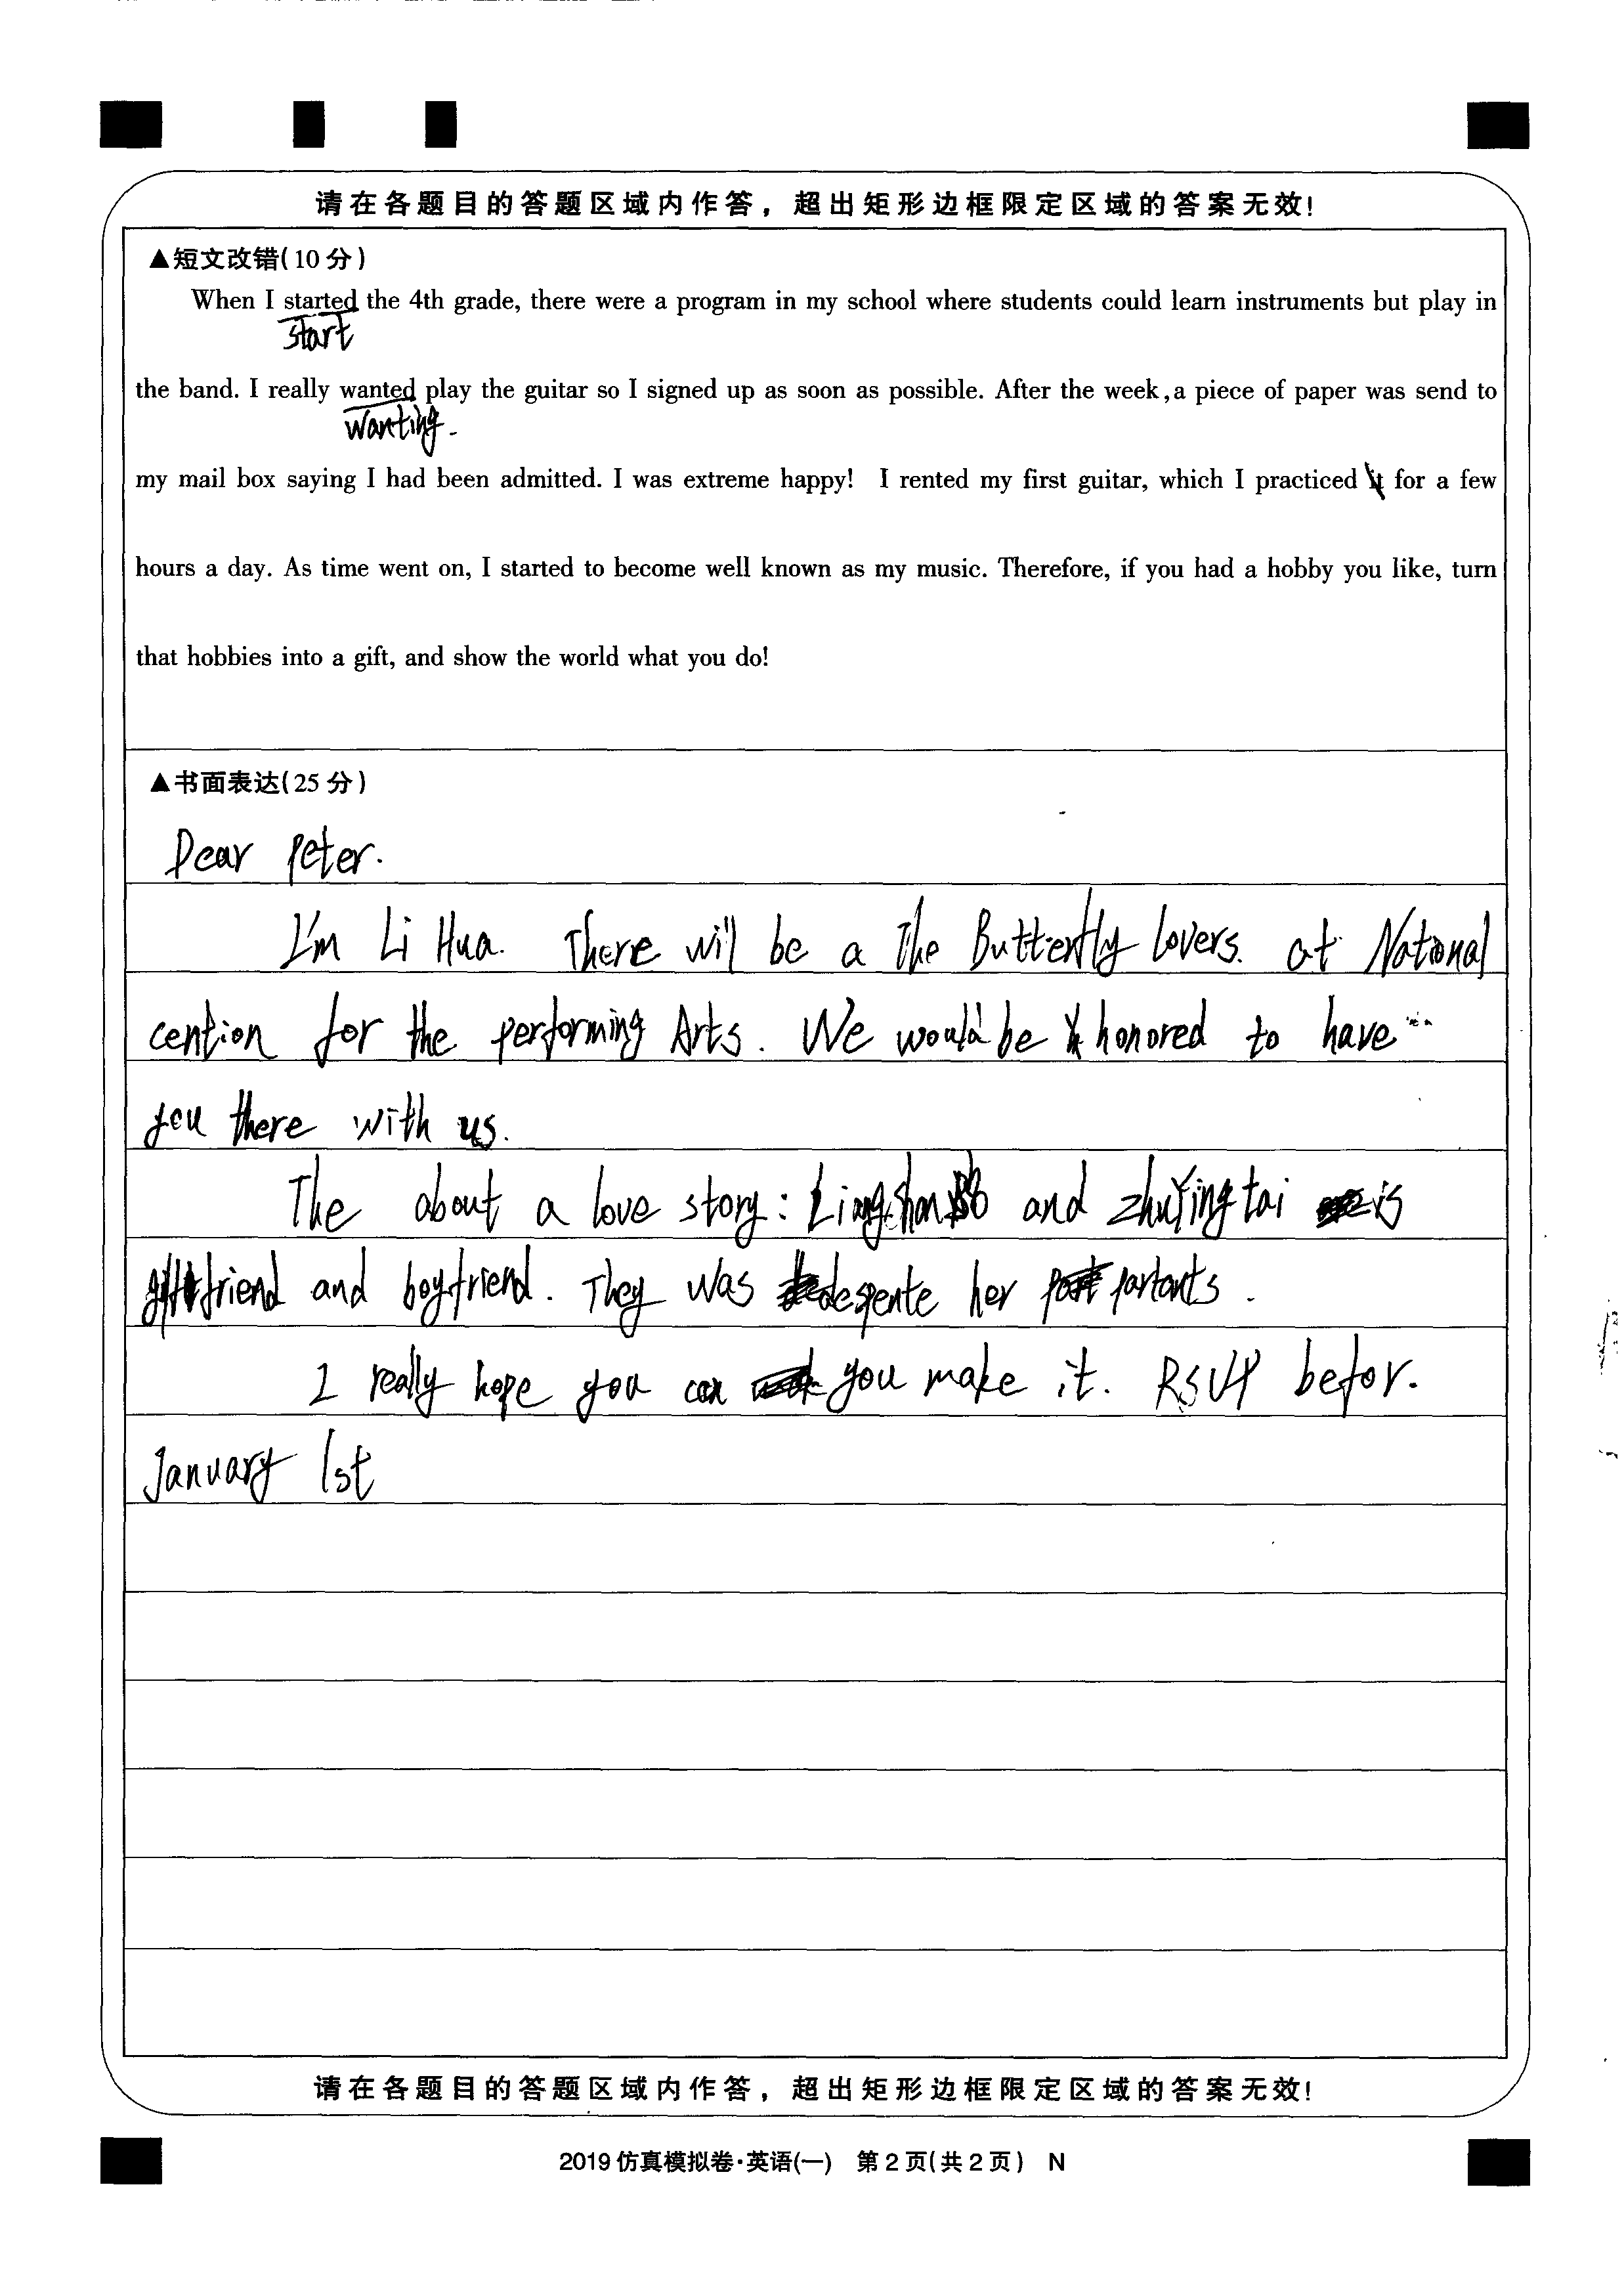 请在各题目的答题区域内作答，超出矩形边框限定区域的答案无效!
▲短文改错(10分)
When I started the 4th grade, there were a program in my school where students could learn instruments but play in
start
the band. I really wanted play the guitar so I signed up as soon as possible. After the week,a piece of paper was send to
Wanting.
my mail box saying I had been admitted. I was extreme happy! I rented my first guitar, which I practiced it for a few
hours a day. As time went on, I started to become well known as my music. Therefore, if you had a hobby you like, turn
that hobbies into a gift, and show the world what you do!
▲书面表达(25分)
Dear Peter.
I'm Li Hua. There will be a The Butterfly lovers. at National
cention for the performing Arts. We would be honored to have
you there with us.
The about a love story: and zhuYingtai is
friend and boyfriend. They was her partants.
I really hope you can you make it. RSVP befor.
January 1st
请在各题目的答题区域内作答，超出矩形边框限定区域的答案无效!
2019仿真模拟卷·英语(一) 第2页(共2页) N